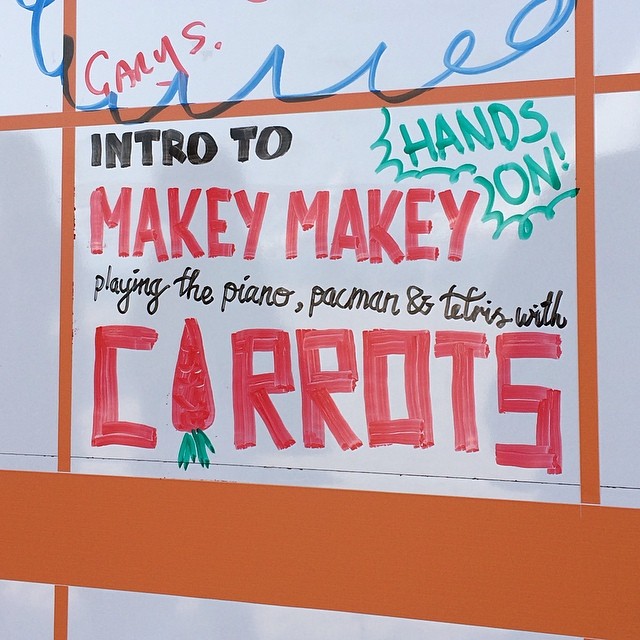 Gary S.
INTRO TO
HANDS
ON!
MAKEY MAKEY
playing the piano, pacman & tetris with
CARROTS